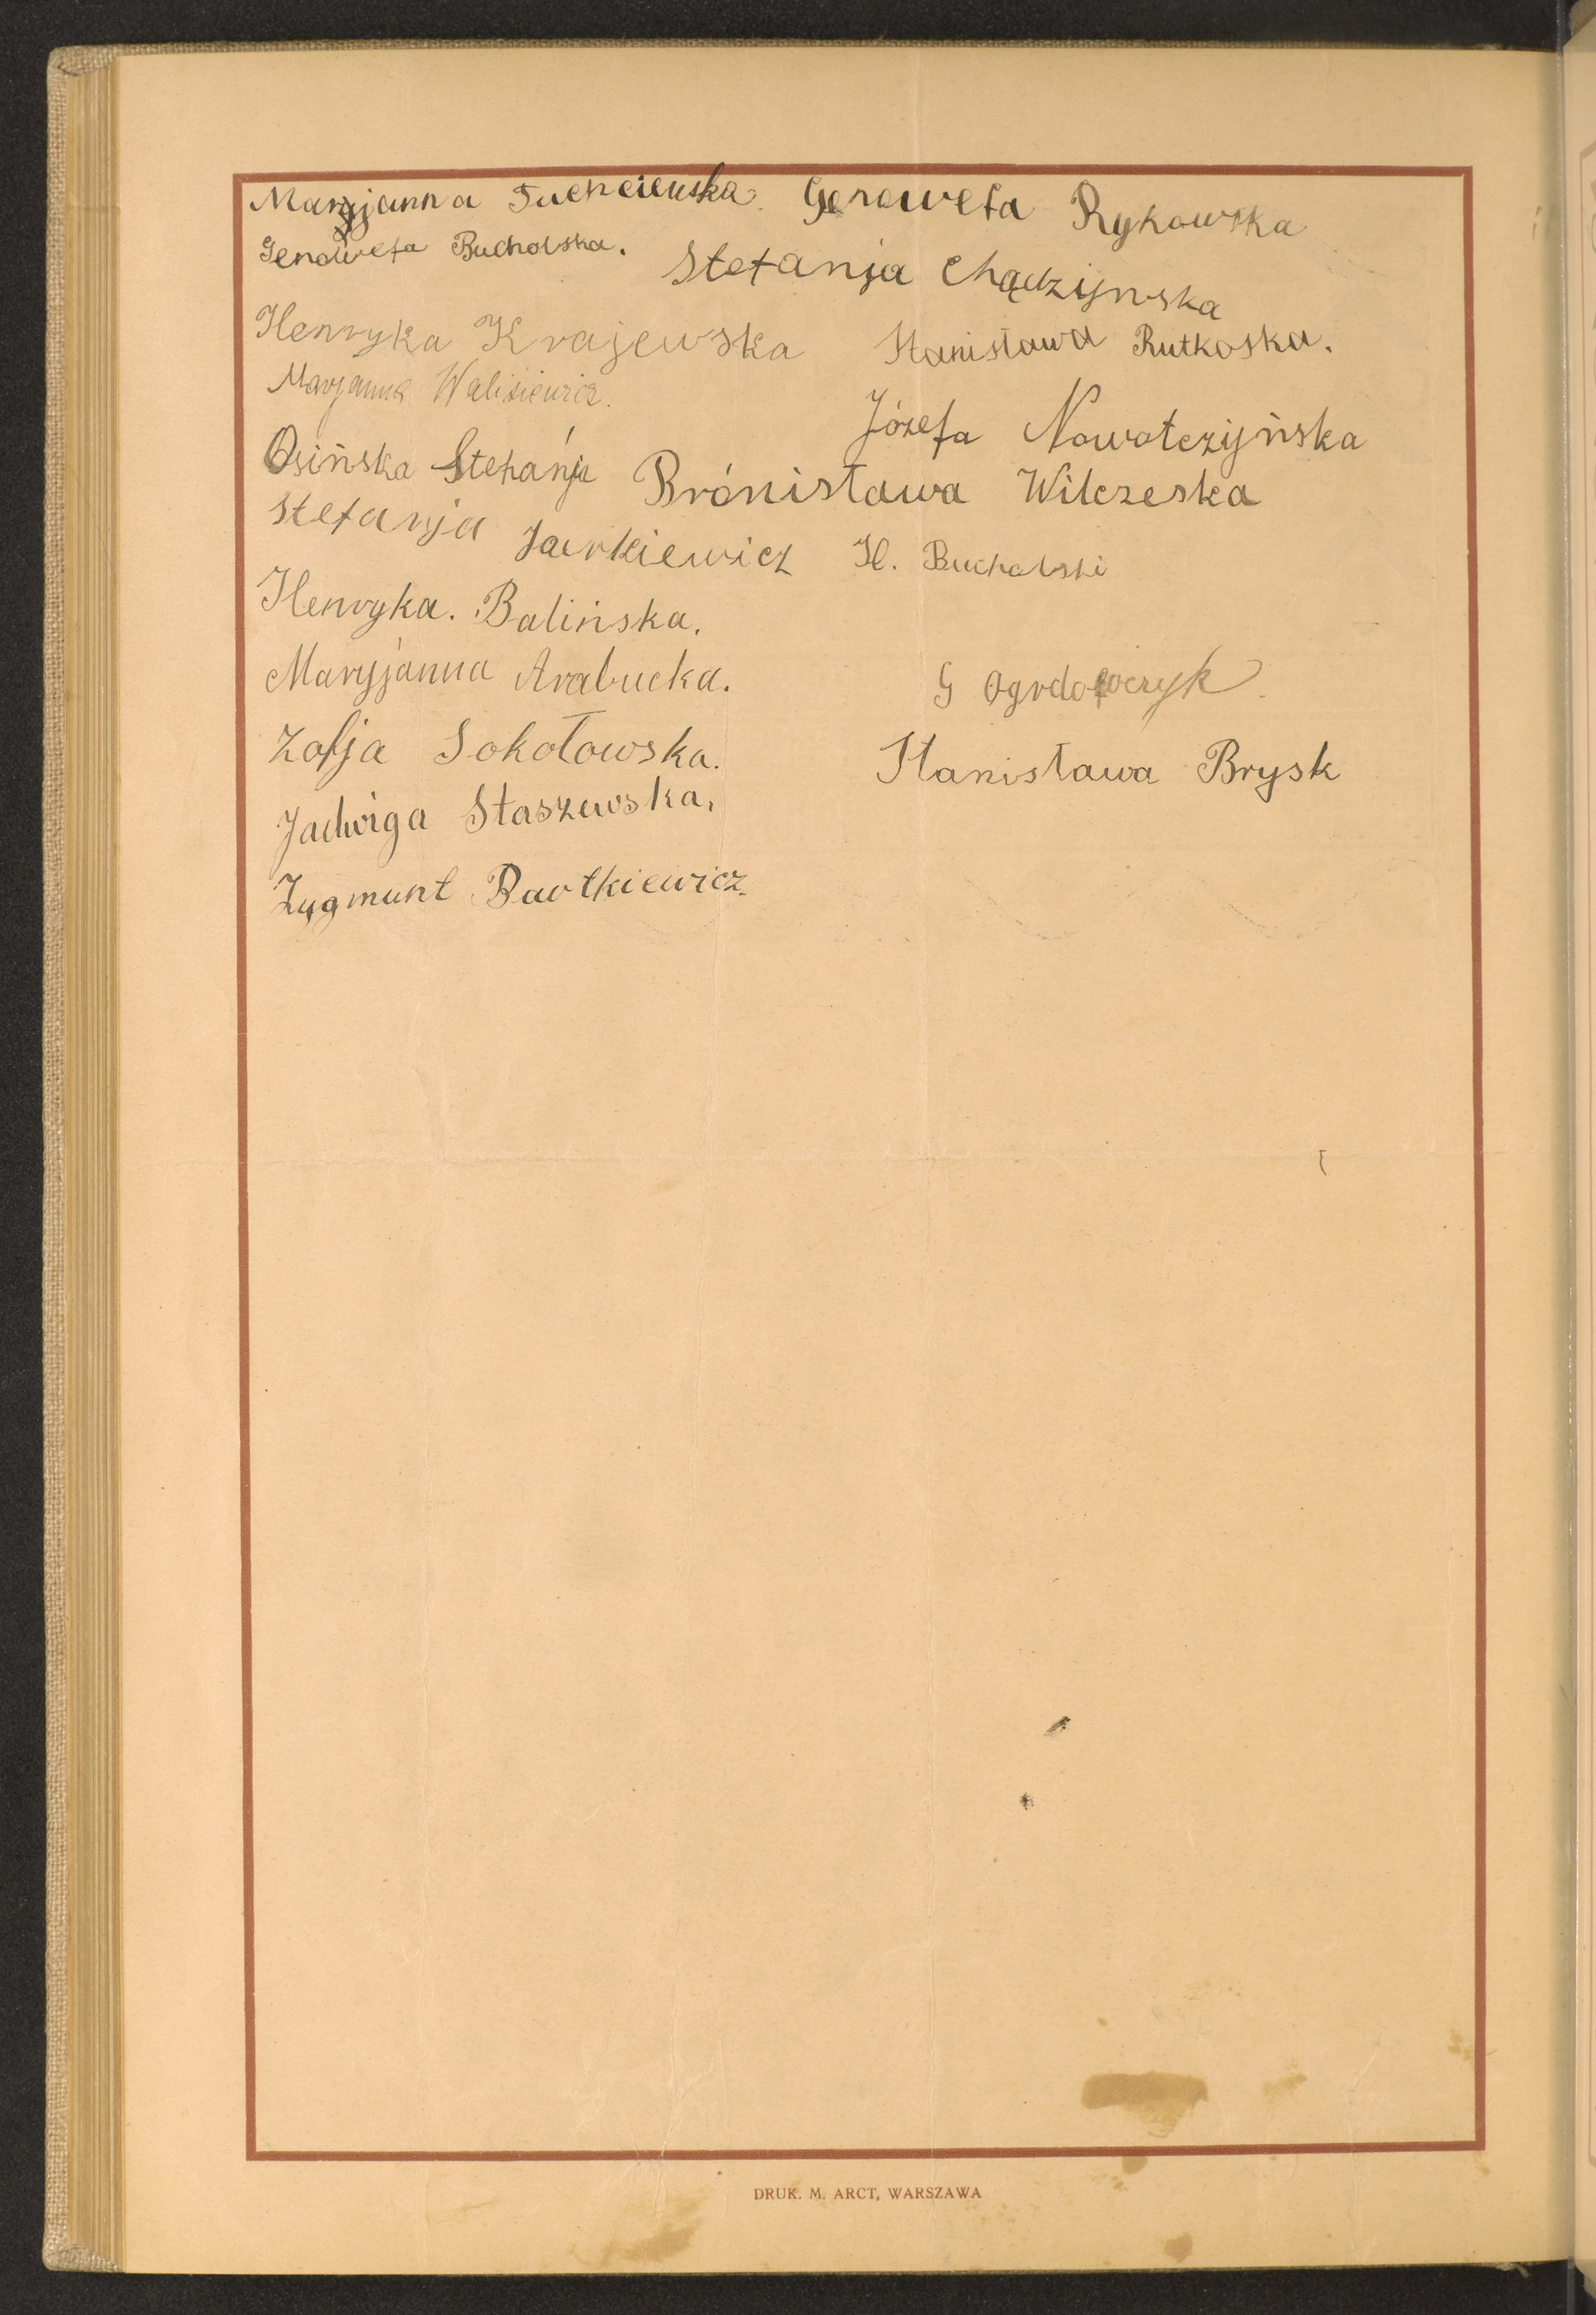 Maryjanna Genowefa Rykowska
Genowefa Bucholska.
Stefanja Chądzijnska
Henryka Krajewska Stanisława Rutkoska.
Maryanna Walisiewicz.
Józefa Nowotczijńska
Osińska Stefanja Brónisława Wilczeska
Stefanja Jarkiewicz H. Bucholski
Henryka. Balińska.
Maryjanna Arabucka.
G Ogrdowczyk
Zofja Sokołowska.
Stanisława Brysk
Jadwiga Staszewska.
Zygmunt Bartkiewicz.
DRUK. M. ARCT, WARSZAWA